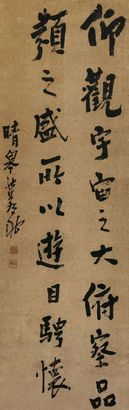 仰觀宇宙之大俯察品
類之盛所以遊目騁懷
晴皋